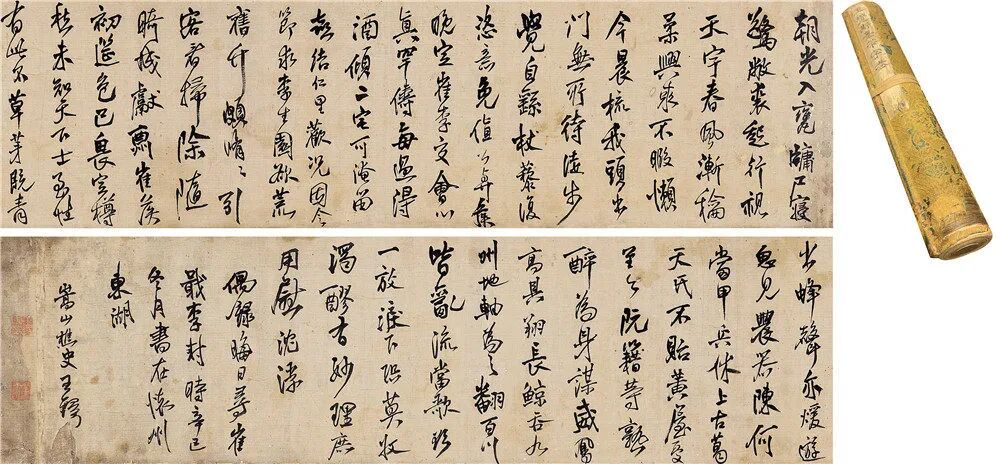 朝光入甕牖尸寢
驚敝裘起行視
天宇春風漸和
柔興來不暇懶
今晨梳我頭出
門無所待徒步
覺自繇杖藜復
恣意免值公與矦
晚定崔李交會心
真罕儔每過得
酒傾二宅可淹留
喜結仁里歡況因令
節求李生園欲荒
舊竹頗脩〻引
客看掃除隨
時成獻酬崔侯
初筵色已畏空樽
愁未知天下士至性
有此不草芽既青
出蜂聲亦煖遊
思見農器陳何
當甲兵休上古葛
天氏不貽黃屋憂
至今阮籍等熟
醉為身謀威鳳
高其翔長鯨吞九
州地軸為之翻百川
皆亂流當歌欲
一放淚下恐莫收
濁醪有妙理庶
用慰沈浮
偶錄晦日尋崔
戢李封時辛巳
冬月書在懷州
東湖
嵩山樵史王鐸